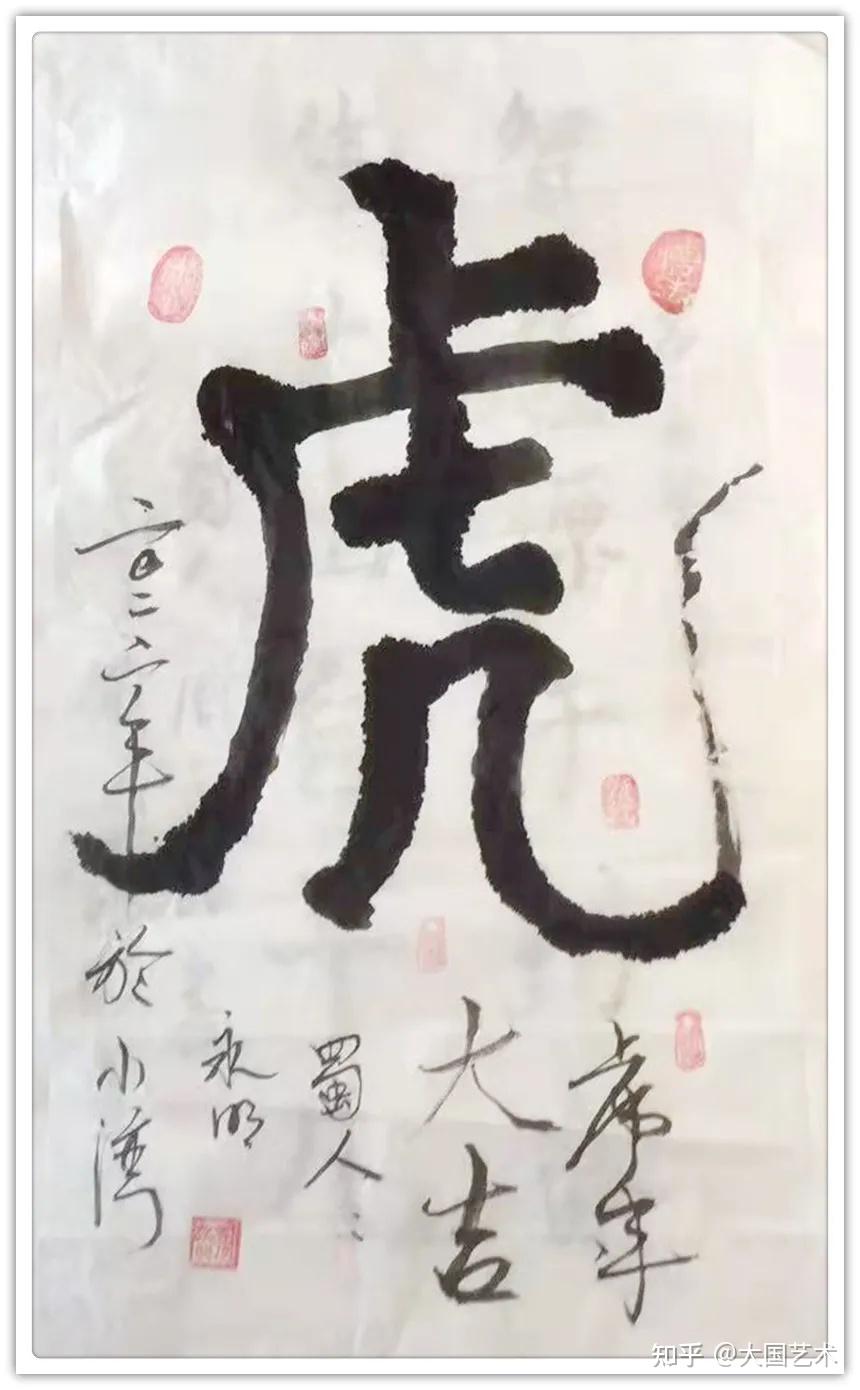 虎
虎年
大吉
蜀人
永明
二〇二二年於小湾
知乎 @大国艺术